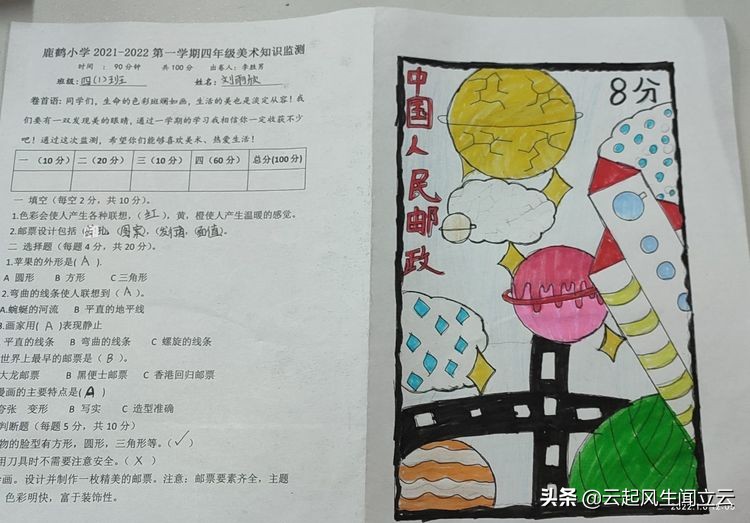 鹿鹤小学2021-2022第一学期四年级美术知识监测
时间 : 90分钟 共100分 出卷人:李胜男
班级:四(1)班 姓名:刘雨欣
卷首语:同学们,生命的色彩斑斓如画,生活的美也是淡定从容!我
们要有一双发现美的眼睛,通过一学期的学习我相信你一定收获不少
吧!通过这次监测,希望你们能够喜欢美术、热爱生活!
一(10分) 二(20分) 三(10分) 四(60分) 总分(100分)
一 填空(每空2分,共10分)。
1.色彩会使人产生各种联想,(红),黄,橙使人产生温暖的感觉。
2.邮票设计包括(齿孔,(图案),(发行铭,(面值)。
二 选择题(每题4分,共20分)。
1.苹果的外形是(A).
A 圆形 B 方形 C三角形
2.弯曲的线条使人联想到(A)。
A.蜿蜒的河流 B 平直的地平线
3.画家用(A)表现静止
平直的线条 B 弯曲的线条 C 螺旋的线条
世界上最早的邮票是(B)。
大龙邮票 B 黑便士邮票 C 香港回归邮票
漫画的主要特点是(A)
夸张 变形 B 写实 C 造型准确
判断题(每题5分,共10分)
物的脸型有方形,圆形,三角形等。(✓)
用刀具时不需要注意安全。(X)
绘画。设计并制作一枚精美的邮票。注意:邮票要素齐全,主题
色彩明快,富于装饰性。
中国人民邮政
8分
头条 @云起风生闻立云